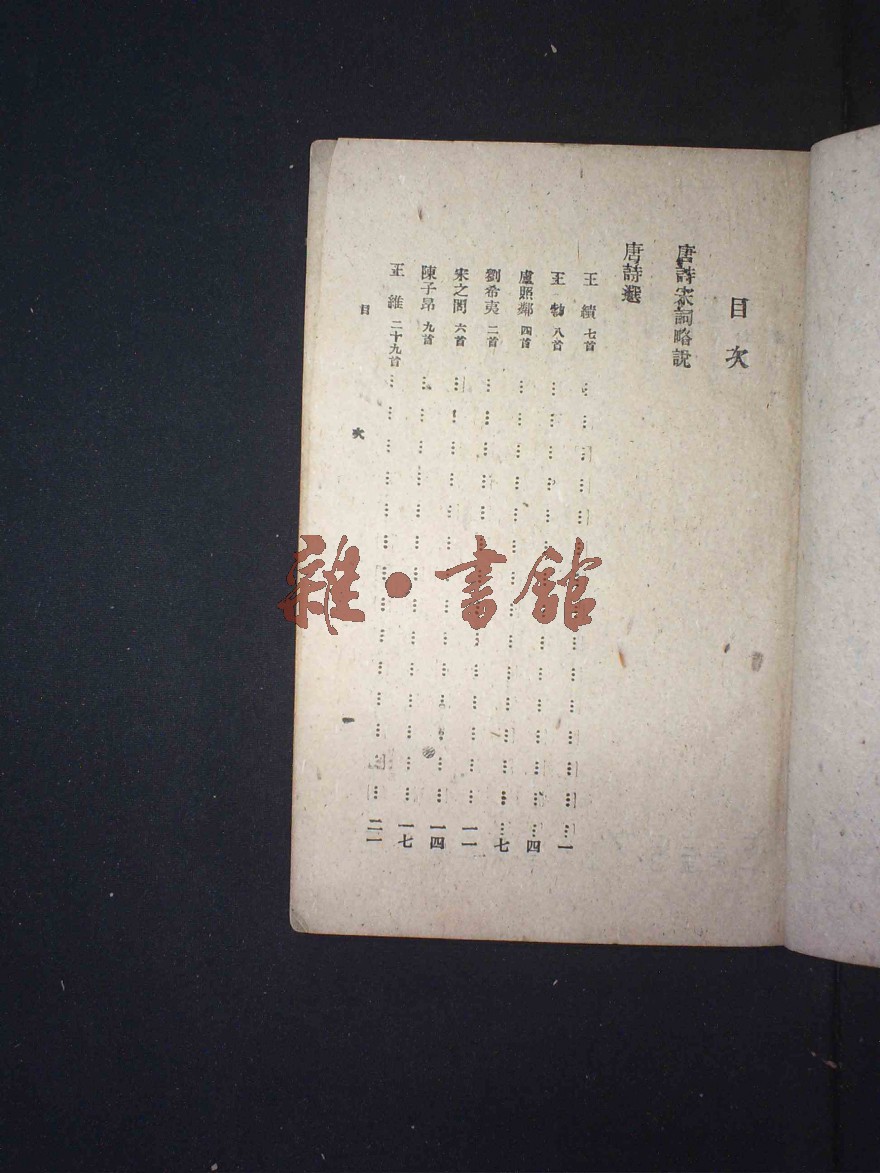 目次
唐詩宋詞略說
唐詩選
王績 七首……一
王勃 八首……四
盧照鄰 四首……七
劉希夷 二首……一一
宋之問 六首……一四
陳子昂 九首……一七
王維 二十九首……二一
目次
雜·書館